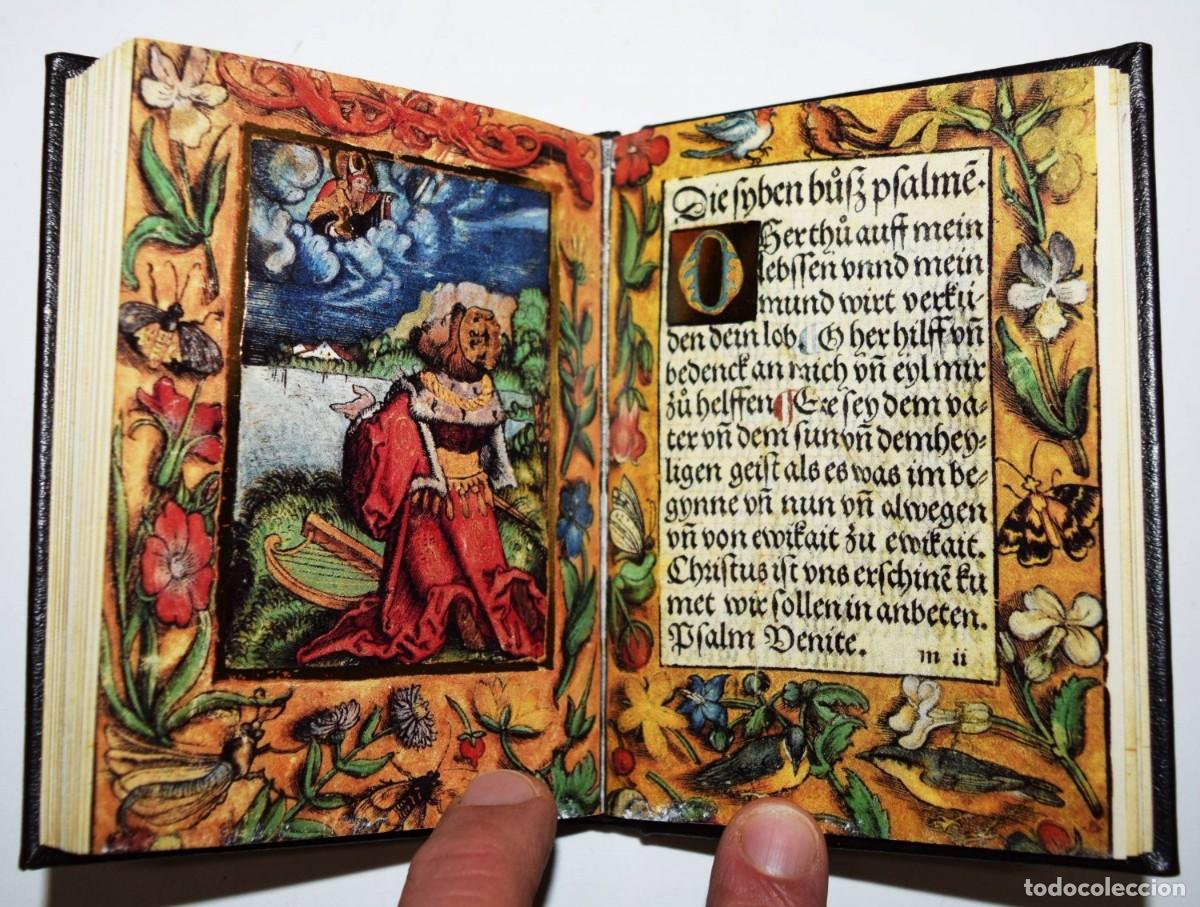 Die syben bůsz psalmē.
O Her thů auff mein
lebssen vnnd mein
mund wirt verkü-
den dein lob. ¶ O her hilff vñ
bedenck an mich vñ eyl mir
zů helffen ¶ Ere sey dem va-
ter vñ dem sun vñ dem hey-
ligen geist als es was im be-
gynne vñ nun vñ alwegen
vñ von ewikait zu ewikait.
Christus ist vns erschinē ku
met wir sollen in anbeten.
Psalm Venite.
m ii
todocoleccion